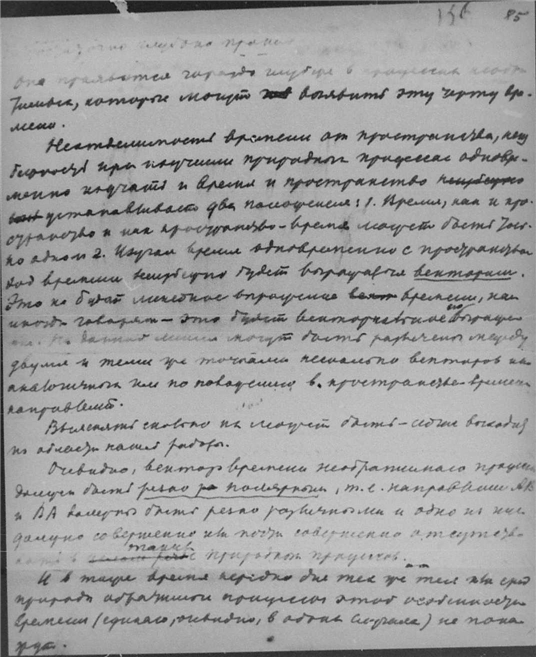 156 85
глубоко
она проявляется гораздо глубже в
которые могут выявить эту черту вре-
мени.
Неотделимость времени от пространства,
при изучении природных процессов одновре-
менно изучать и время и пространство неизбежно
устанавливает два положения: 1. Время, как и про-
странство и как пространство-время может быть
одно 2. Изучая время одновременно с пространством
ход времени неизбежно будет выражаться вектором.
Это не будет линейное выражение времени, как
иногда говорят – это будет векториальное выраже-
ние. На данной линии могут быть различены между
двумя и теми же точками несколько векторов не
аналогичных по поведению в пространстве-времени
направлений.
Выяснять сколько их может быть – сейчас выходит
из области нашей работы.
Очевидно, вектор времени необратимого процесса
должен быть резко полярным, т.е. направления AB
и BA должны быть резко различными и одно из них
должно совершенно или почти совершенно отсутство-
вать в природных процессах.
И в то же время нередко для тех же тел или сред
природы обратимого процесса этой особенности
времени (единого, очевидно, в обоих случаях) не пока-
жут.